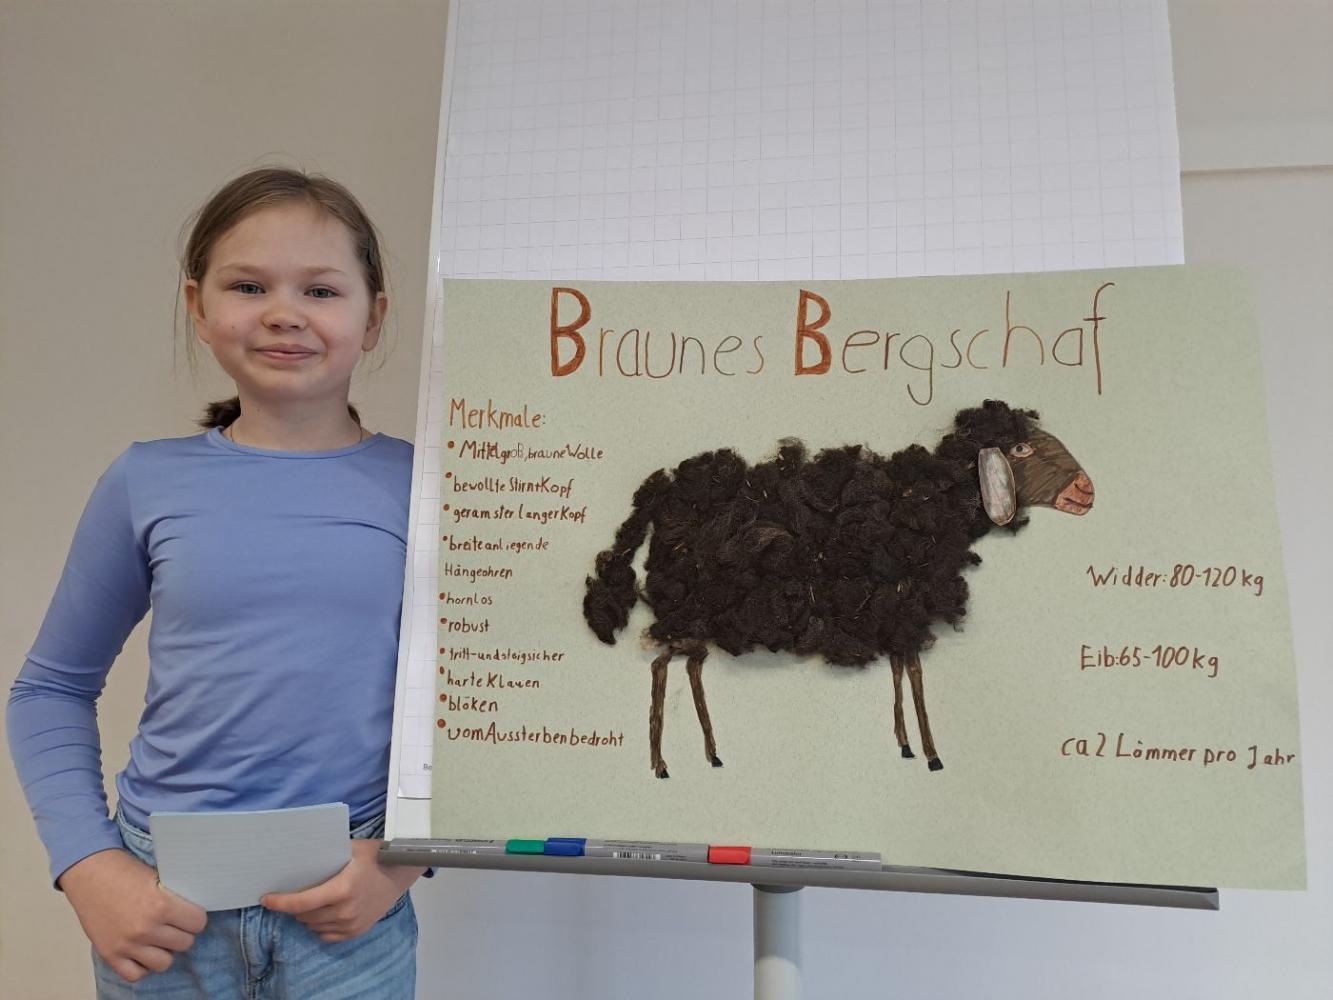 Braunes Bergschaf
Merkmale:
• Mittelgroß, braune Wolle
• bewollte Stirn+Kopf
• geramster langer Kopf
• breite anliegende
Hängeohren
• hornlos
• robust
• tritt-und steigsicher
• harte Klauen
• blöken
• vom Aussterben bedroht
Widder: 80-120 kg
Eib: 65-100 kg
ca 2 Lämmer pro Jahr